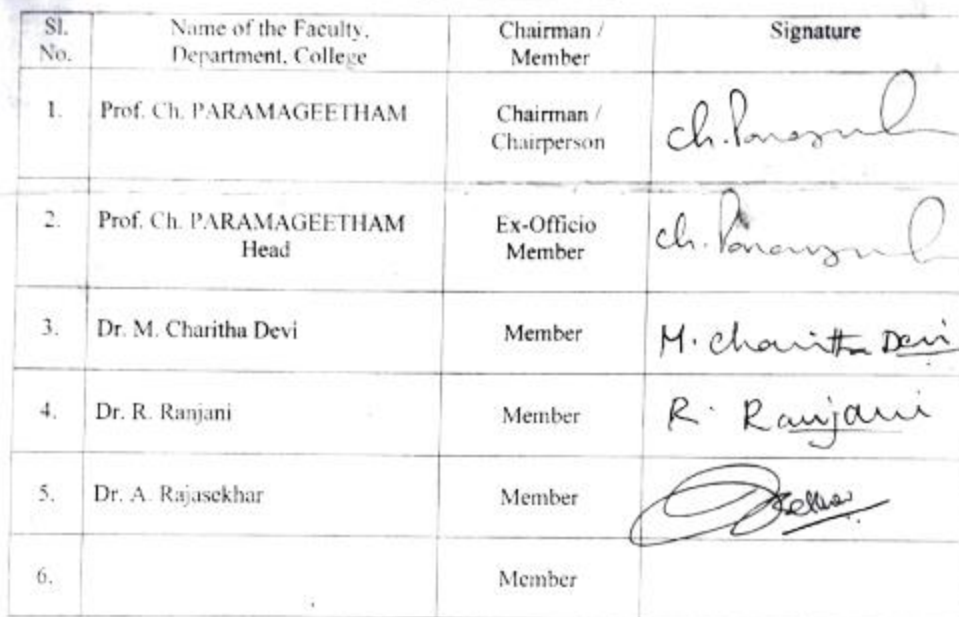 Sl. No. Name of the Faculty, Department, College Chairman / Member Signature
1. Prof. Ch. PARAMAGEETHAM Chairman / Chairperson
2. Prof. Ch. PARAMAGEETHAM Head Ex-Officio Member
3. Dr. M. Charitha Devi Member M. Charitha Devi
4. Dr. R. Ranjani Member R. Ranjani
5. Dr. A. Rajasekhar Member
6. Member